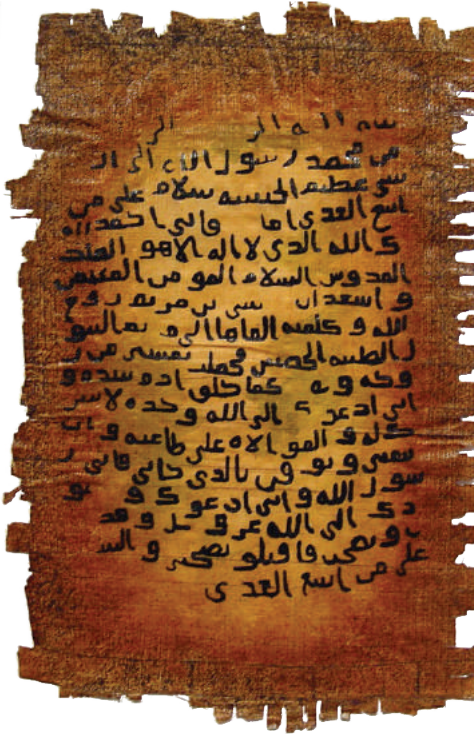 سم الله الر الر
من محمد رسول الله الى الن
سى عظيم الحبسه سلام على من
اتبع الهدى اما فانى احمد اليه
ك الله الدى لا اله الا هو الملك
القدوس السلام المومن المهيمن
و اسهد ان سى بن مريم روح
الله و كلمته القاها الى مريم البتو
ل الطيبه الحصينه فحملت بعيسى من ر
وحه و كما خلق ادم بيده و
انى ادعوك الى الله وحده لا سر
ك له و الموالاه على طاعته و ان
تتبعنى و تو من بالدى جانى فانى ر
سول الله و انى ادعوك و
دك الى الله عز و جل و قد
و نصحت فاقبلو نصيحتى و السلا
على من اتبع الهدى